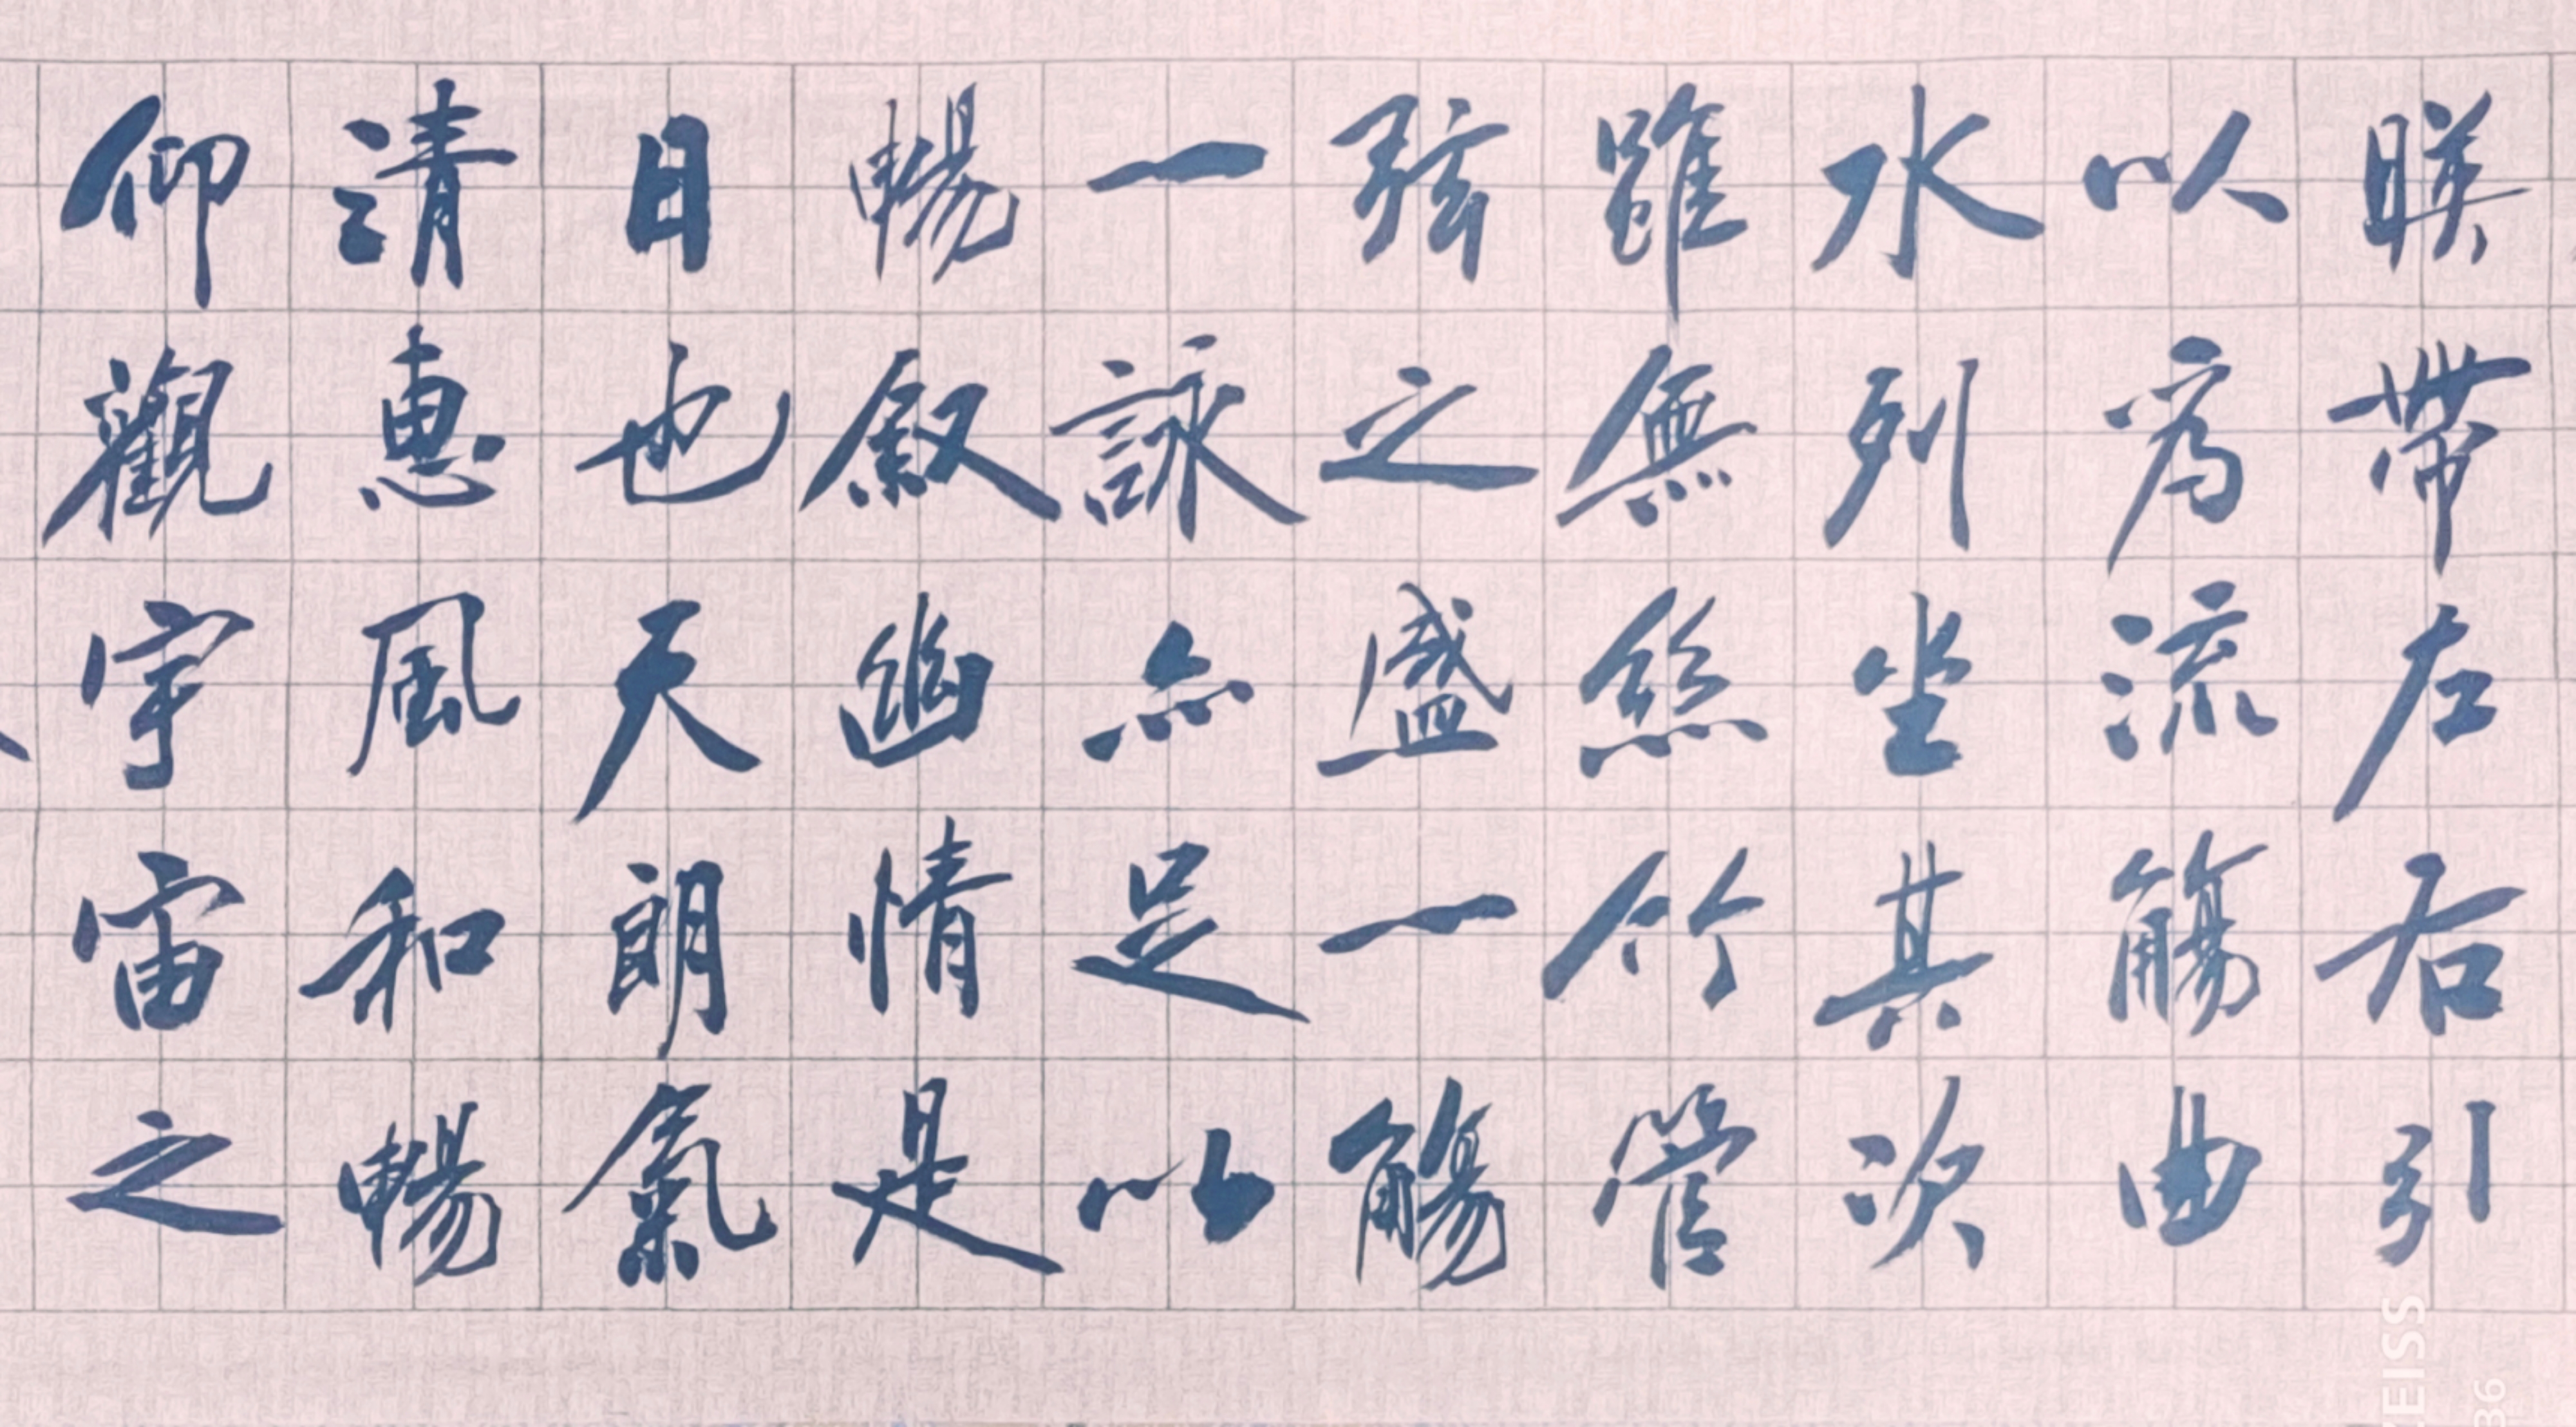 暎帶左右引
以為流觴曲
水列坐其次
雖無絲竹管
弦之盛一觴
一詠亦足以
暢叙幽情是
日也天朗氣
清惠風和暢
仰觀宇宙之
EISS